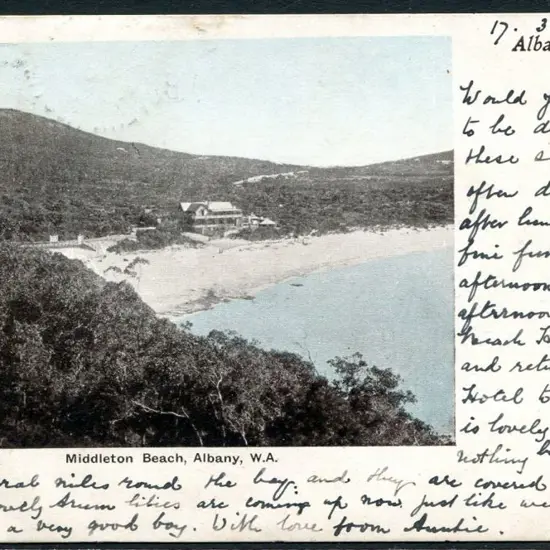 17. 3
Alba
Would y
to be d
these s
often d
after lun
fine fun
afternoon
afternoon
Beach H
and retu
Hotel to
is lovely
nothing b
Middleton Beach, Albany, W.A.
ral miles round the bay and they are covered
ovely Arum lilies are coming up now just like we
a very good boy. With love from Auntie.